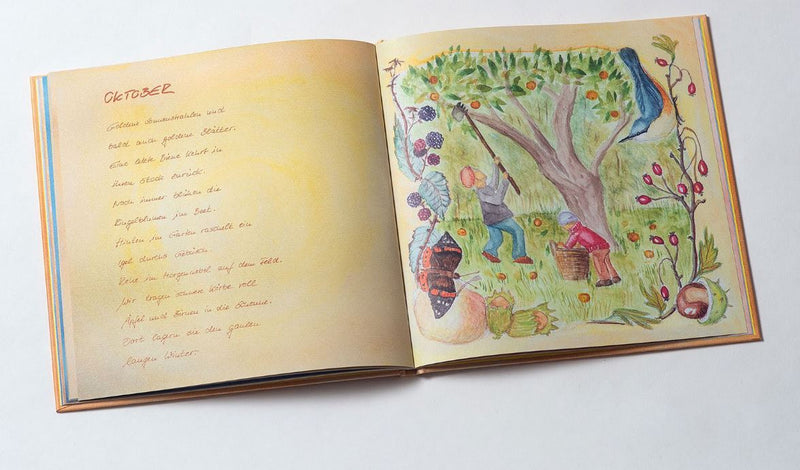 OKTOBER
Goldene Sonnenstrahlen und
bald auch goldene Blätter.
Eine letzte Biene kehrt in
ihren Stock zurück.
Noch immer blühen die
Ringelblumen im Beet.
Hinten im Garten raschelt ein
Igel durchs Gebüsch.
Rehe im Morgennebel auf dem Feld.
Wir tragen unsere Körbe voll
Äpfel und Birnen in die Scheune.
Dort lagern sie den ganzen
langen Winter.